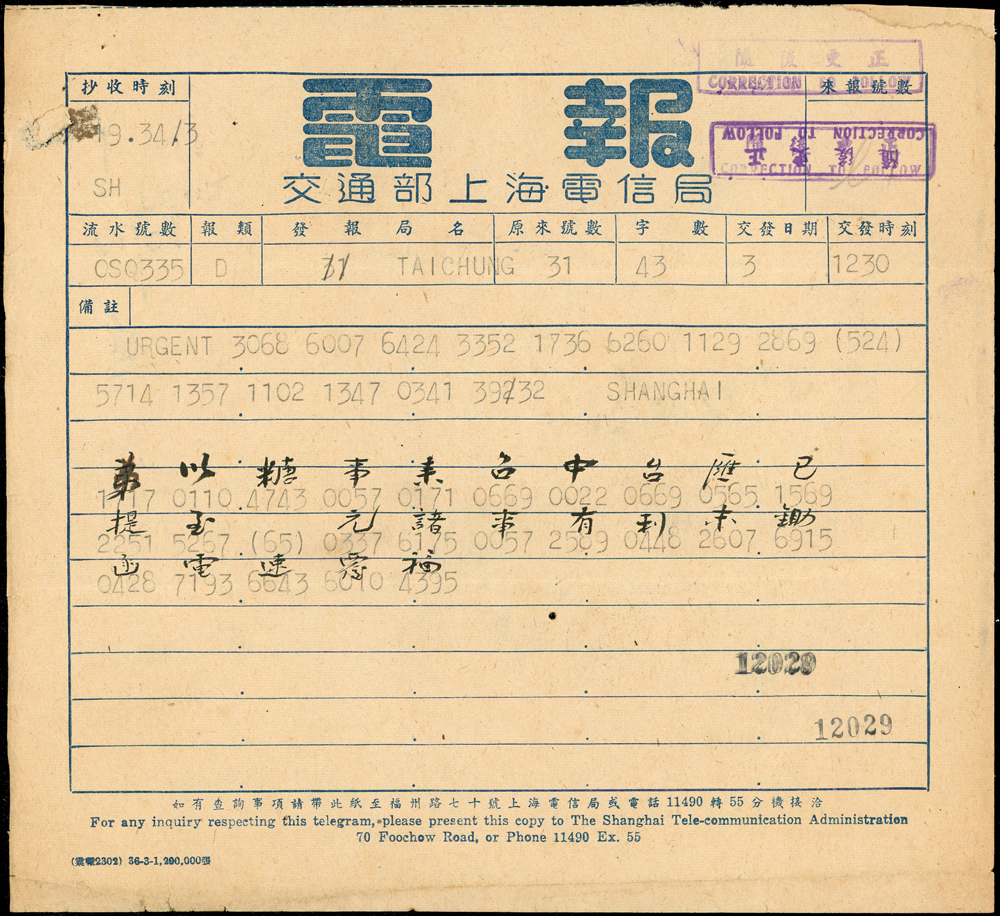 隨後更正
CORRECTION TO FOLLOW
抄收時刻
電報
來報號數
19.34/3
CORRECTION TO FOLLOW
隨後更正
CORRECTION TO FOLLOW
SH
交通部上海電信局
流水號數 報類 發報局名 原來號數 字數 交發日期 交發時刻
CSQ335 D TAICHUNG 31 43 3 1230
備註
URGENT 3068 6007 6424 3352 1736 6260 1129 2869 (524)
5714 1357 1102 1347 0341 39/32 SHANGHAI
弟 以 糖 事 来 台 中 台 匯 已
1717 0110 4743 0057 0171 0669 0022 0669 0565 1569
提 至 元 諸 事 有 利 未 鋤
2251 5267 (65) 0337 6175 0057 2589 0448 2607 6915
函 電 速 福
0428 7193 6643 6010 4395
12029
12029
如有查詢事項請帶此紙至福州路七十號上海電信局或電話11490轉55分機接洽
For any inquiry respecting this telegram, please present this copy to The Shanghai Tele-communication Administration
70 Foochow Road, or Phone 11490 Ex. 55
2302) 36-3-1,200,000張